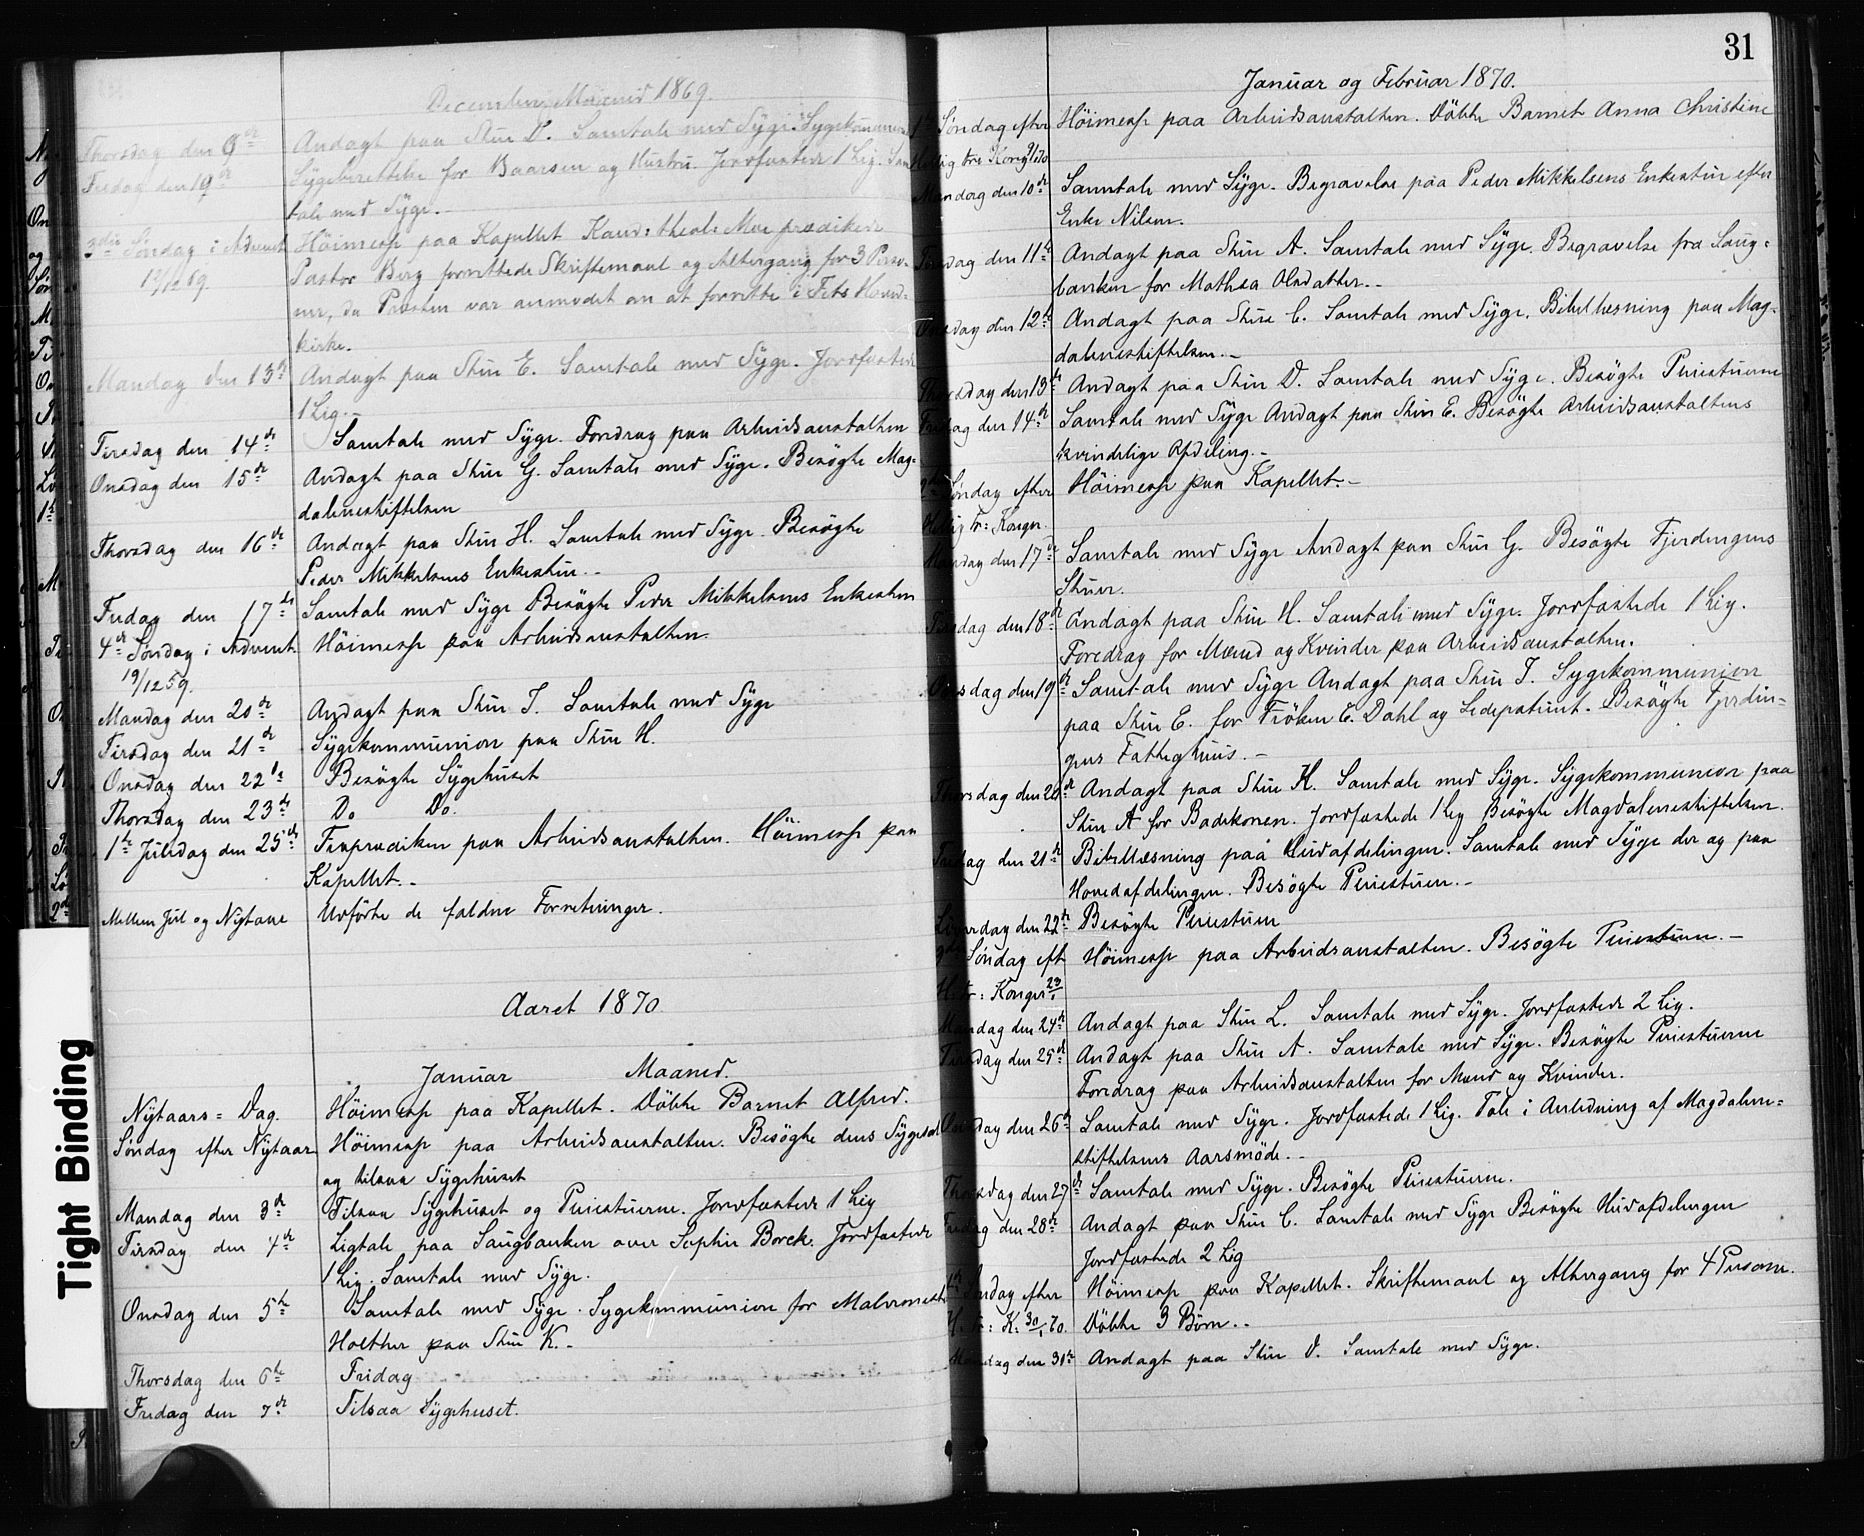 December Maaned 1869.
Thorsdag den 9de Andagt paa Stue D. Samtale med Syge. Sygekommunion
Fredag den 10de Sygeberettelse for Baarsen og Hustru. Jordfæstede 1 Lig. Sam
tale med Syge.-
3die Søndag i Advent Høimesse paa Kapellet Kand: theol: Moe prædikede
12/12 69 Pastor Berg forrettede Skriftemaal og Altergang for 3 Perso-
ner, da Præsten var anmodet om at forrette i Fets Hoved-
kirke.
Mandag den 13de Andagt paa Stue E. Samtale med Syge. Jordfæstede
1 Lig.-
Tirsdag den 14de Samtale med Syge. Foredrag paa Arbeidsanstalten
Onsdag den 15de Andagt paa Stue G. Samtale med Syge. Besøgte Mag-
dalenestiftelsen
Thorsdag den 16de Andagt paa Stue H. Samtale med Syge. Besøgte
Peder Mikkelsens Enkestue.-
Fredag den 17de Samtale med Syge Besøgte Peder Mikkelsens Enkestue
4de Søndag i Advent Høimesse paa Arbeidsanstalten.
19/12 59.
Mandag den 20de Andagt paa Stue I. Samtale med Syge
Tirsdag den 21de Sygekommunion paa Stue H.
Onsdag den 22de Besøgte Sygehuset
Thorsdag den 23de Do Do.
1ste Juledag den 25de Fraprædiken paa Arbeidsanstalten. Høimesse paa
Kapellet.-
Mellem Jul og Nytaar Udførte de faldne Forretninger.
Aaret 1870
Januar Maaned.
Nytaars = Dag. Høimesse paa Kapellet. Døbte Barnet Alfred.
Søndag efter Nytaar Høimesse paa Arbeidsanstalten. Besøgte dens Sygesal
og tilsaa Sygehuset
Mandag den 3de Tilsaa Sygehuset og Pleiestuerne. Jordfæstede 1 Lig
Tirsdag den 4de Ligtale paa Saugbanken over Sophie Borck. Jordfæstede
1 Lig. Samtale med Syge.
Onsdag den 5te Samtale med Syge. Sygekommunion for Malermester
Holther paa Stue K.-
Thorsdag den 6te Fridag
Fredag den 7de Tilsaa Sygehuset.
31
Januar og Februar 1870.
1ste Søndag efter Høimesse paa Arbeidsanstalten. Døbte Barnet Anna Christine
Hellig tre Konger
Mandag den 10de Samtale med Syge. Begravelse paa Peder Mikkelsens Enkestue efter
Enke Nilsen.
Tirsdag den 11te Andagt paa Stue A. Samtale med Syge. Begravelse fra Saug-
banken for Mathea Olsdatter.-
Onsdag den 12te Andagt paa Stue C. Samtale med Syge. Bibellæsning paa Mag-
dalenestiftelsen.-
Thorsdag den 13de Andagt paa Stue D. Samtale med Syge. Besøgte Pleiestuerne
Fredag den 14de Samtale med Syge Andagt paa Stue E. Besøgte Arbeidsanstaltens
kvindelige Afdeling.-
2den Søndag efter Høimesse paa Kapellet.-
Hellig tr: Konger.
Mandag den 17de Samtale med Syge Andagt paa Stue G. Besøgte Fjerdingens
Stuer.
Tirsdag den 18de Andagt paa Stue H. Samtale med Syge. Jordfæstede 1 Lig.
Foredrag for Mænd og Kvinder paa Arbeidsanstalten.
Onsdag den 19de Samtale med Syge Andagt paa Stue I. Sygekommunion
paa Stue E. for Frøken E. Dahl og Lepepatient. Besøgte Fjerdin-
gens Fattighuus.-
Thorsdag den 20de Andagt paa Stue K. Samtale med Syge. Sygekommunion paa
Stue A for Badekonen. Jordfæstede 1 Lig Besøgte Magdalenestiftelsen.
Fredag den 21de Bibellæsning paa Hudafdelingen. Samtale med Syge der og paa
Hovedafdelingen. Besøgte Pleiestuen.-
Løverdag den 22de Besøgte Pleiestuen
Søndag eft Høimesse paa Arbeidsanstalten. Besøgte Pleiestuen.-
H. tr: Konger 23/1
Mandag den 24de Andagt paa Stue L. Samtale med Syge. Jordfæstede 2 Lig.
Tirsdag den 25de Andagt paa Stue A. Samtale med Syge. Besøgte Pleiestuerne
Foredrag paa Arbeidsanstalten for Mænd og Kvinder.
Onsdag den 26de Samtale med Syge. Jordfæstede 1 Lig. Tale i Anledning af Magdalene-
stiftelsens Aarsmøde.-
Thorsdag den 27de Samtale med Syge. Besøgte Pleiestuerne.
Fredag den 28de Andagt paa Stue C. Samtale med Syge Besøgte Hudafdelingen
Jordfæstede 2 Lig
Søndag efter Høimesse paa Kapellet. Skriftemaal og Altergang for 4 Personer.
H. tr: K: 30/1 70. Døbte 3 Børn.-
Mandag den 31te Andagt paa Stue D. Samtale med Syge.
Tight Binding